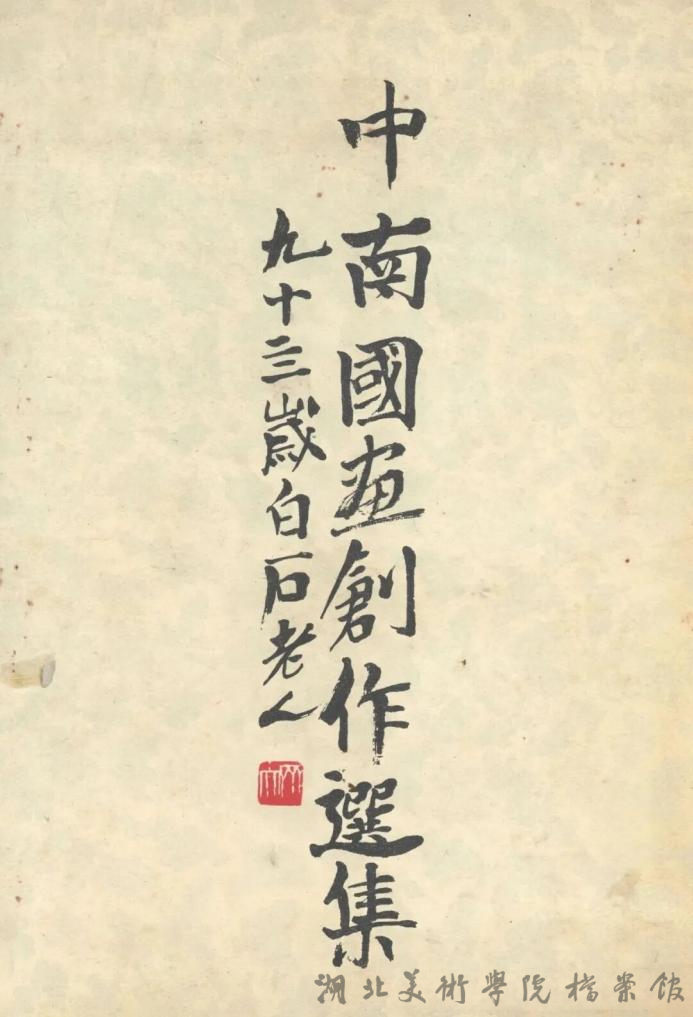 中南國画創作選集
九十三歲白石老人
湖北美術學院檔案館